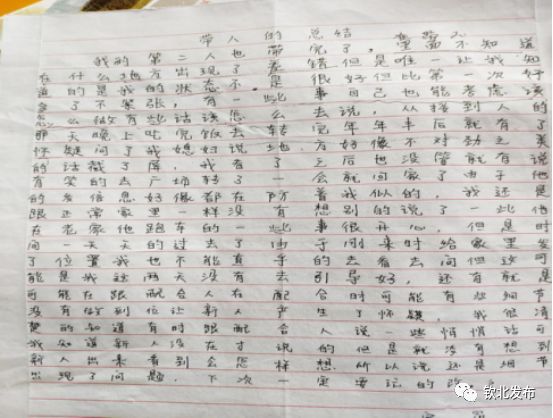 带人的总结
我的第二人也带完了,
在什么地方出现了差错但是唯一让我知
道的是我的状态不是很好但比第一次好
多了不紧张,有一些事自己也能考虑该
怎么做有些话该怎么去说,从接到人的
那天晚上吃完饭去转完年年丰后就有了
怀疑问了我媳妇说地方好像不对劲之类
的话截了屏,我看了之后也没管就有说
有笑的去广场转了一会就回家了由于他
的发信息好像都在防着我似的,我还是
跟还常家里一样没有想别的说了一些他
在老家他跑车的一些事很开心,但是时
间一天天的过去了由于刚来时给家里发
了位置我也不能直乎的去看去问他这可
能是我这两天没有去引导好,还有就是
可能在跟配合人在配合时可能有些细节
没有做到位让新人产生了怀疑,我很清
楚的知道有时跟配合人说些悄悄话可
我知道新人没在才说的但是就没有想到
新人出来看到会怎样想,所以说还是细节
出现了问题,下次一定要记的
钦北发布